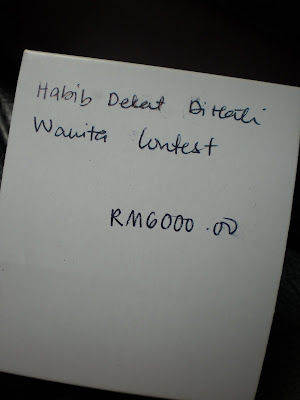 Habib Dekat DiHati
Wanita Contest
RM6000.00